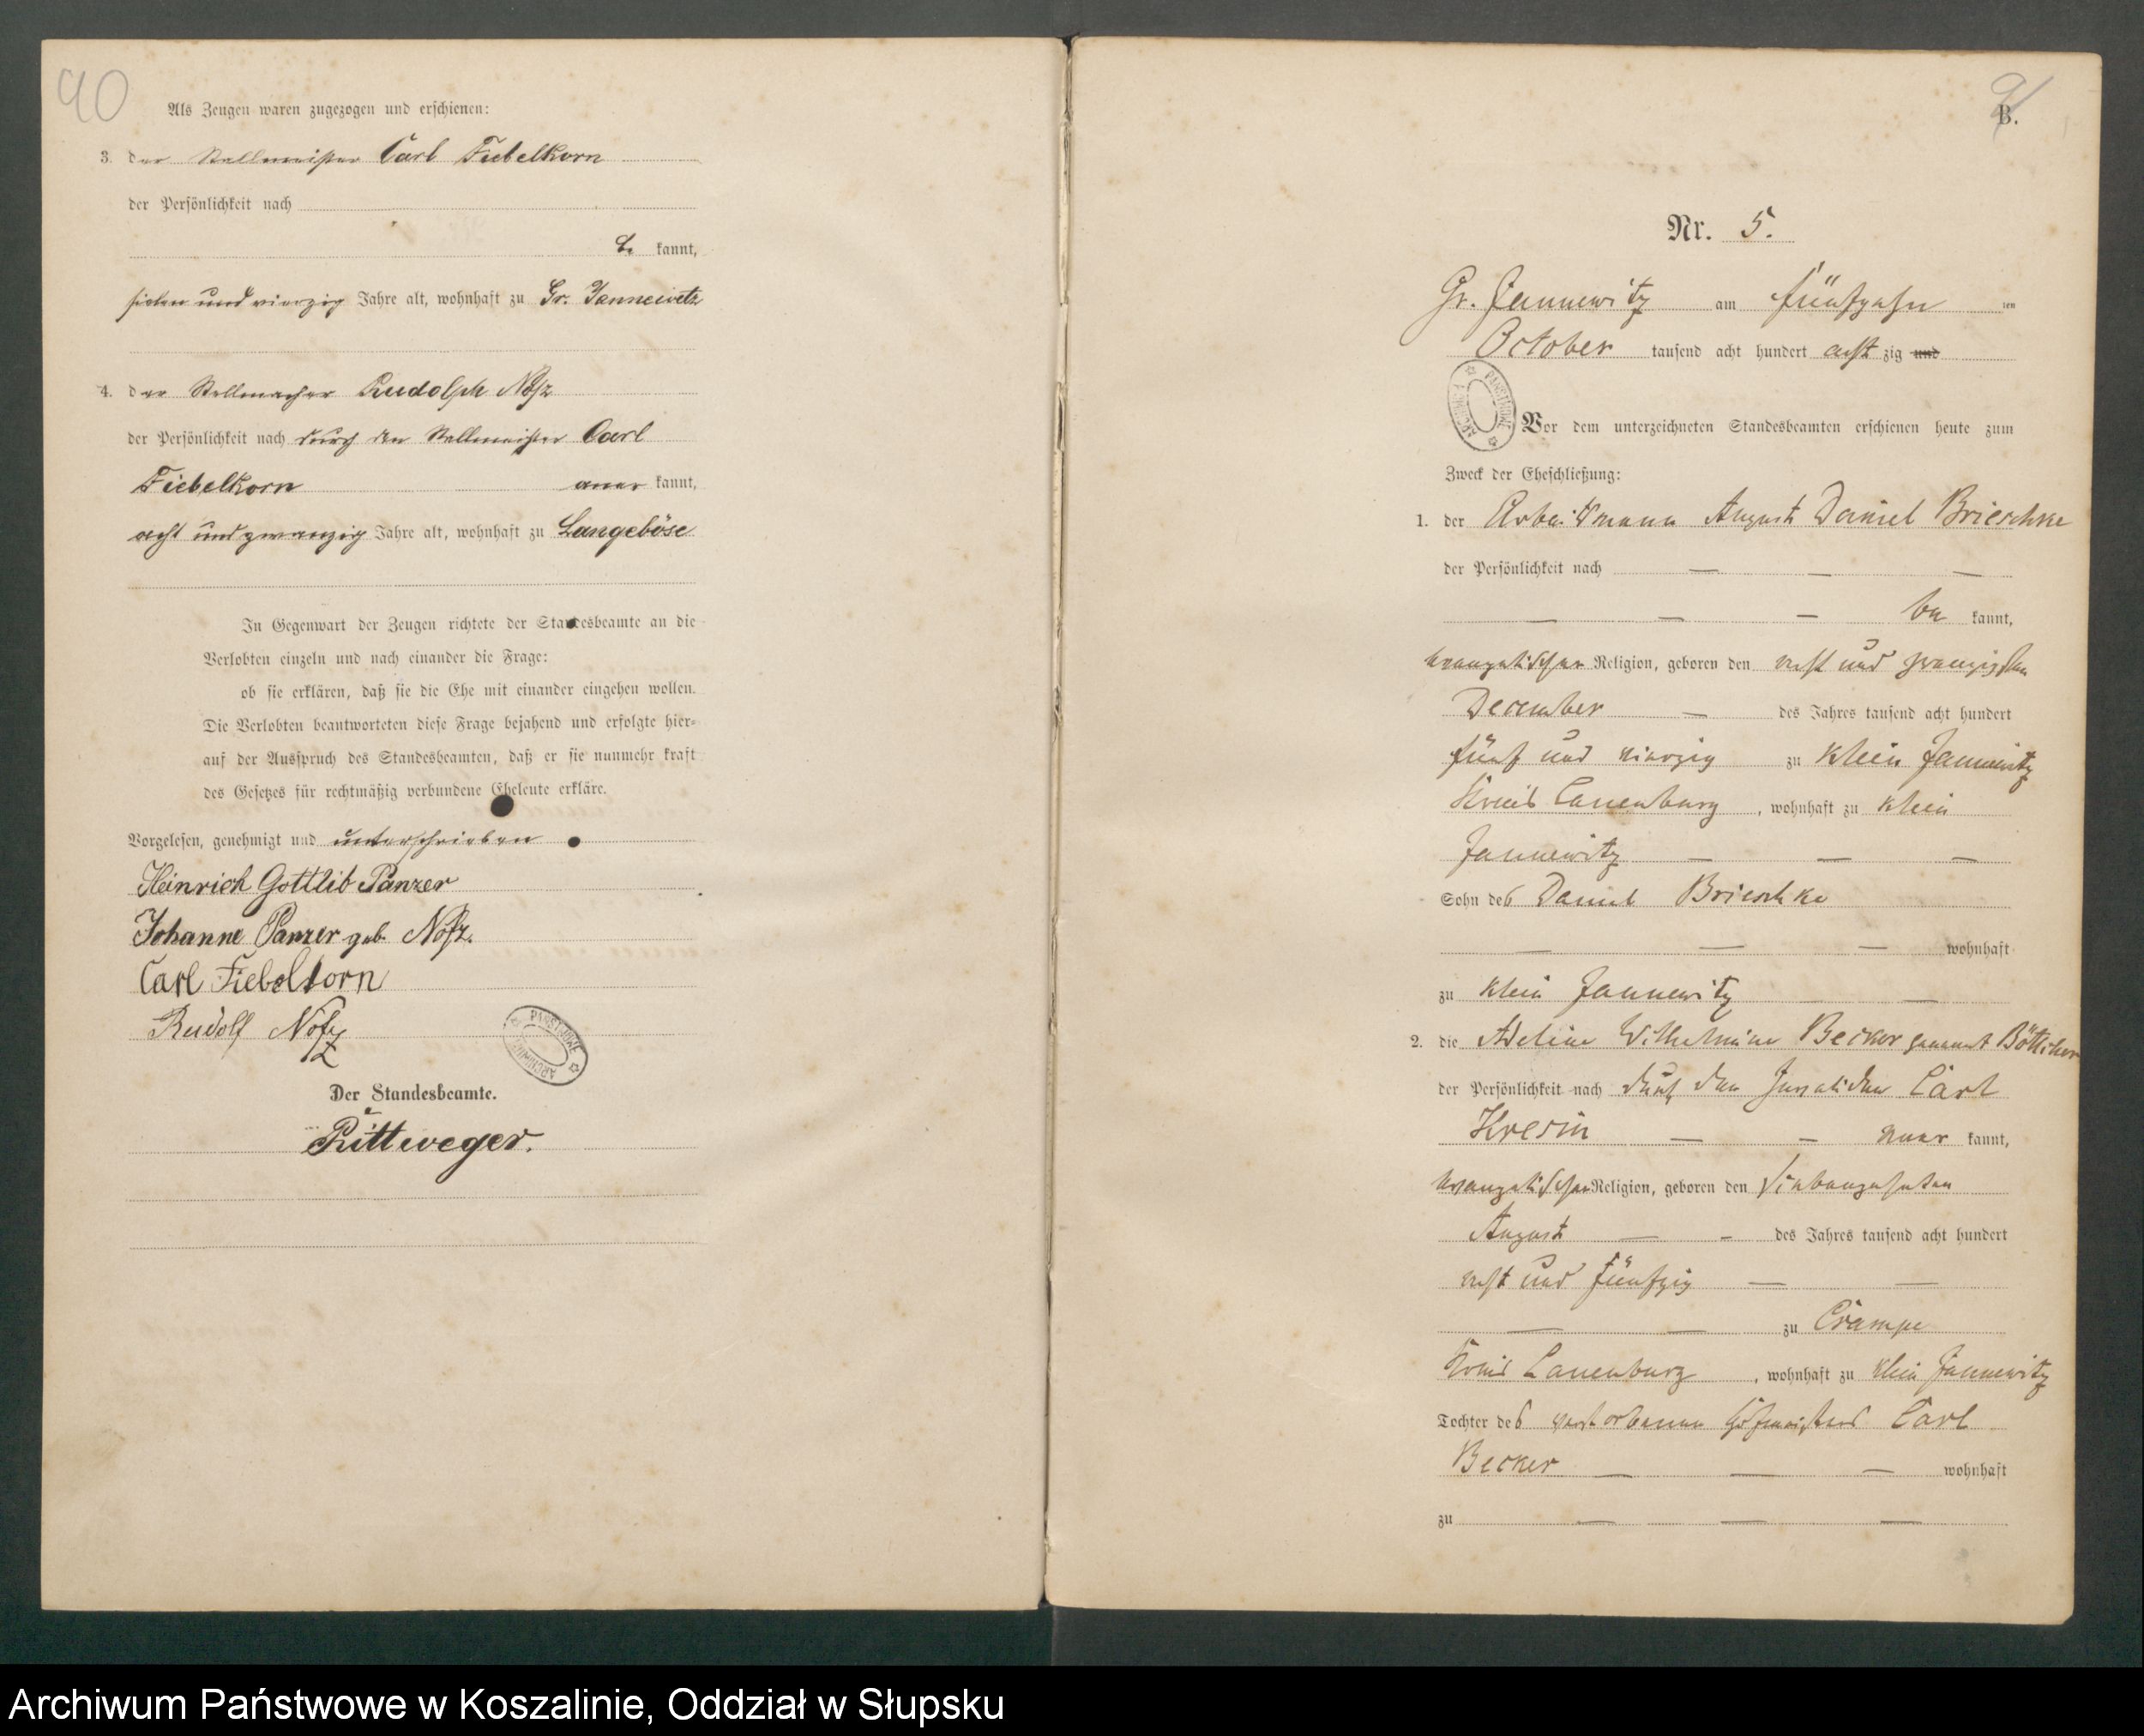 90
Als Zeugen waren zugezogen und erschienen:
3. der Stellmeister Carl Fiebelkorn
der Persönlichkeit nach
be kannt,
sieben und vierzig Jahre alt, wohnhaft zu Gr. Jannewitz
4. der Stellmacher Rudolph Nofz
der Persönlichkeit nach durch den Stellmeister Carl
Fiebelkorn aner kannt,
acht und zwanzig Jahre alt, wohnhaft zu Langeböse
In Gegenwart der Zeugen richtete der Standesbeamte an die
Verlobten einzeln und nach einander die Frage:
ob sie erklären, daß sie die Ehe mit einander eingehen wollen.
Die Verlobten beantworteten diese Frage bejahend und erfolgte hier-
auf der Ausspruch des Standesbeamten, daß er sie nunmehr kraft
des Gesetzes für rechtmäßig verbundene Eheleute erkläre.
Vorgelesen, genehmigt und unterschrieben
Heinrich Gottlib Panzer
Johanne Panzer geb. Nofz.
Carl Fiebelkorn
Rudolf Nofz
ARCHIWUM PAŃSTWOWE
Der Standesbeamte.
Rittweger.
B.
Nr. 5.
Gr. Jannewitz am fünfzehn ten
October tausend acht hundert acht zig und
ARCHIWUM PAŃSTWOWE
Vor dem unterzeichneten Standesbeamten erschienen heute zum
Zweck der Eheschließung:
1. der Arbeitsmann August Daniel Brieschke
der Persönlichkeit nach — — —
— — — be kannt,
evangelischer Religion, geboren den acht und zwanzigsten
December — des Jahres tausend acht hundert
fünf und vierzig zu Klein Jannewitz
Kreis Lauenburg, wohnhaft zu Klein
Jannewitz — — —
Sohn des Daniel Brieschke
— — — wohnhaft
zu Klein Jannewitz —
2. die Adeline Wilhelmine Becker genannt Bötticher
der Persönlichkeit nach durch den Invaliden Carl
Kresin — — aner kannt,
evangelischer Religion, geboren den siebenzehnten
August — – des Jahres tausend acht hundert
acht und fünfzig — —
— — zu Crampe
Kreis Lauenburg, wohnhaft zu Klein Jannewitz
Tochter des verstorbenen Hofmeisters Carl
Becker — — — wohnhaft
zu — — —
Archiwum Państwowe w Koszalinie, Oddział w Słupsku